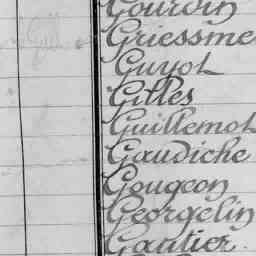 Gourdin
Griessme
Guyot
Gilles
Guillemot
Gaudiche
Gougeon
Georgelin
Gautier